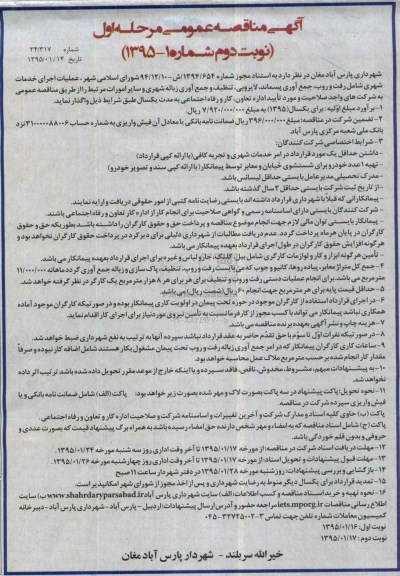 آگهی مناقصه عمومی مرحله اول
(نوبت دوم شماره ۱-۱۳۹۵)
شماره ۳۴/۳۱۷
تاریخ ۱۳۹۵/۰۱/۱۴
شهرداری پارس آباد مغان در نظر دارد به استناد مجوز شماره ۱۳۹۴/۶۵۴/ش-۹۴/۱۲/۱۰ شورای اسلامی شهر، عملیات اجرای خدمات
شهری شامل رفت و روب، جمع آوری پسماند، لایروبی، تنظیف و جمع آوری زباله شهری و سایر امورات مرتبط را از طریق مناقصه عمومی
به شرکت های واجد صلاحیت و مورد تأیید اداره تعاون، کار و رفاه اجتماعی به مدت یکسال طبق شرایط ذیل واگذار نماید.
۱- برآورد مبلغ اولیه: برای یکسال (۱۳۹۵) به مبلغ ۷/۹۲۰/۰۰۰/۰۰۰ ریال
۲- تضمین شرکت در مناقصه: مبلغ ۳۹۶/۰۰۰/۰۰۰ ریال ضمانت نامه بانکی یا معادل آن فیش واریزی به شماره حساب ۳۱۰۰۰۰۸۸۰۰۶ نزد
بانک ملی شعبه مرکزی پارس آباد.
۳- شرایط اختصاصی شرکت کنندگان:
- داشتن حداقل یک مورد قرارداد در امر خدمات شهری و تجربه کافی (با ارائه کپی قرارداد)
- تهیه ۱ عدد خودرو برای شستشوی خیابان و معابر توسط پیمانکار (با ارائه کپی سند و تصویر خودرو)
- مدرک تحصیلی مدیرعامل بایستی حداقل لیسانس باشد.
- از تاریخ ثبت شرکت بایستی حداقل ۲ سال گذشته باشد.
- پیمانکارانی که قبلاً با شهرداری قرارداد داشته اند بایستی رضایت نامه کتبی از امور حقوقی دریافت و ارایه نمایند.
- شرکت کنندگان بایستی دارای اساسنامه رسمی و گواهی صلاحیت برای انجام کار از اداره کار تعاون و رفاه اجتماعی باشند.
- پیمانکار بایستی توان مالی لازم جهت انجام موضوع مناقصه و پرداخت حق و حقوق کارگران را داشته باشد بطوریکه حق و حقوق
کارگران در پایان هر ماه پرداخت گردد. عدم دریافت مطالبات از شهرداری دلیلی برای دیرکرد در پرداخت حقوق کارگران نخواهد بود و
هر گونه افزایش حقوق کارگران در طول اجرای قرارداد بعهده پیمانکار می باشد.
- تأمین هر گونه ابزار و کار و لوازمات کارگری شامل بیل، کلنگ، جارو لباس و غیره برای اجرای قرارداد بعهده پیمانکار می باشد.
۴- جمع کل متراژ معابر، پیاده روها، کانیو و جوب که می بایست رفت و روب، تنظیف، پاک سازی و زباله جمع آوری گردد ماهانه ۱۱/۰۰۰/۰۰۰
مترمربع می باشد. برای انجام عملیات دستی رفت و روب و تنظیف برای هر ۸ هزار مترمربع یک کارگر در نظر گرفته خواهد شد.
۵- حداقل قیمت پایه برای هر مترمربع جهت انجام ۶۰ ریال (شصت ریال) می باشد.
۶- در اجرای قرارداد استفاده از کارگران موجود در حوزه تحت پیمان در اولویت کاری پیمانکار بوده و در صورتیکه کارگران موجود آماده
همکاری نباشد پیمانکار می تواند با کسب مجوز از کارفرما نسبت به تأمین نیروی موردنیاز برای اجرای کار اقدام نماید.
۷- هزینه چاپ و نشر آگهی بعهده برنده مناقصه می باشد.
۸- در صورتیکه نفرات اول تا سوم با حق تقدم حاضر به عقد قرارداد نباشد سپرده آنها به ترتیب به نفع شهرداری ضبط خواهد شد.
۹- ساعات کاری کارگران پیمانکار که در امر جمع آوری زباله رفت و روب تحت پیمان مشغول بکار هستند شامل اضافه کار نبوده و صرفاً
مقدار کار انجام شده بر حسب مترمربع ملاک عمل محاسبه خواهد بود.
۱۰- به پیشنهادات مبهم، مشروط، مخدوش، ناقص، فاقد سپرده و یا اینکه خارج از موعد مقرر تحویل داده شده باشد ترتیب اثر داده
نخواهد شد.
۱۱- نحوه تحویل: پاکت پیشنهاد در سه پاکت بصورت لاک و مهر شده بصورت زیر خواهد بود: پاکت (الف) شامل ضمانت نامه بانکی و یا
فیش واریزی سپرده شرکت در مناقصه
پاکت (ب) حاوی کلیه اسناد و مدارک شرکت و آخرین تغییرات و اساسنامه شرکت و صلاحیت اداره کار و تعاون و رفاه اجتماعی.
پاکت (ج) شامل اسناد مناقصه که به امضاء و مهر شخص دارنده حق امضاء رسیده باشد به همراه برگ پیشنهاد قیمت که بصورت عددی و
حروفی و بدون قلم خوردگی باشد.
۱۲- مهلت دریافت اسناد شرکت در مناقصه: از مورخه ۱۳۹۵/۰۱/۱۷ تا آخر وقت اداری روز سه شنبه مورخه ۱۳۹۵/۰۱/۲۴.
۱۳- مهلت قبول پیشنهادات و تحویل اسناد: از مورخه ۱۳۹۵/۰۱/۱۷ تا آخر وقت اداری روز چهارشنبه مورخه ۱۳۹۵/۰۱/۲۶.
۱۴- بازگشایی و بررسی پیشنهادات: روز شنبه مورخه ۱۳۹۵/۰۱/۲۸ در دفتر شهردار ساعت ۱۱ صبح
۱۵- تمدید قرارداد برای یکسال دیگر منوط به رضایت شهرداری و پس از اخذ مجوز از شورای شهر امکانپذیر است.
۱۶- نحوه تهیه و خرید اسناد مناقصه و کسب اطلاعات: الف) سایت شهرداری پارس آباد www.shahrdaryparsabad.ir ب) سایت
اطلاع رسانی مناقصات iets.mporg.ir مراجعه حضوری و آدرس ارسال پیشنهادات: اردبیل - پارس آباد - شهرداری پارس آباد - دبیرخانه
کمیسیون معاملات شماره تلفن جهت تماس ۳-۳۲۷۲۵۰۰۲-۰۴۵
نوبت اول: ۱۳۹۵/۰۱/۱۶
نوبت دوم: ۱۳۹۵/۰۱/۱۷
خیرالله سربلند - شهردار پارس آباد مغان